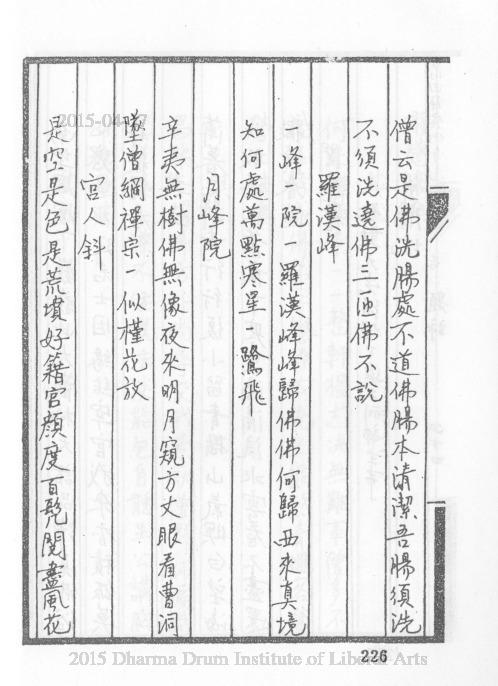 僧云是佛洗腸處不道佛腸本清潔吾腸須洗
不須洗遶佛三匝佛不說
羅漢峰
峰一院一羅漢峰峰歸佛佛何歸西來真境
知何處萬點寒星一鷺飛
月峰院
辛夷無樹佛無像夜來明月窺方丈眼看曹洞
墜僧綱禪宗一似槿花放
宮人斜
是空是色是荒墳好籍宮顏度百髡閱盡風花
226
2015 Dharma Drum Institute of Liberal Arts